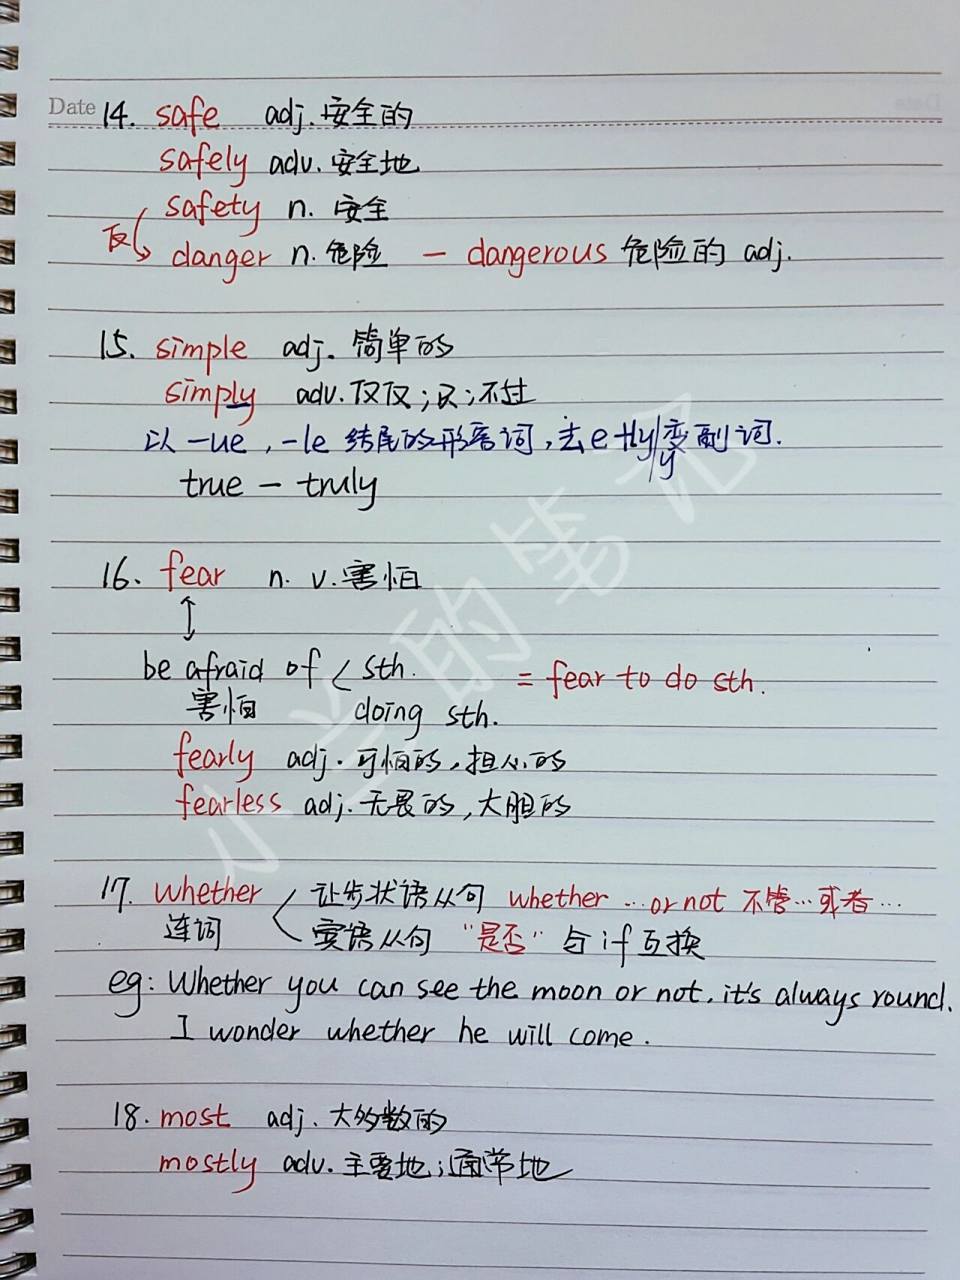 Date 14. safe adj. 安全的
safely adv. 安全地
safety n. 安全
反 danger n. 危险 — dangerous 危险的 adj.
15. simple adj. 简单的
simply adv. 仅仅；只；不过
以 -ue , -le 结尾的形容词，去e+ly/y变副词.
true — truly
16. fear n. v. 害怕
↕
be afraid of < sth. = fear to do sth.
害怕 doing sth.
fearly adj. 可怕的，担心的
fearless adj. 无畏的，大胆的
17. whether 让步状语从句 whether …or not 不管…或者…
连词 宾语从句 “是否” 与if互换
eg: Whether you can see the moon or not, it's always round.
I wonder whether he will come.
18. most adj. 大多数的
mostly adv. 主要地；通常地
小兰的笔记